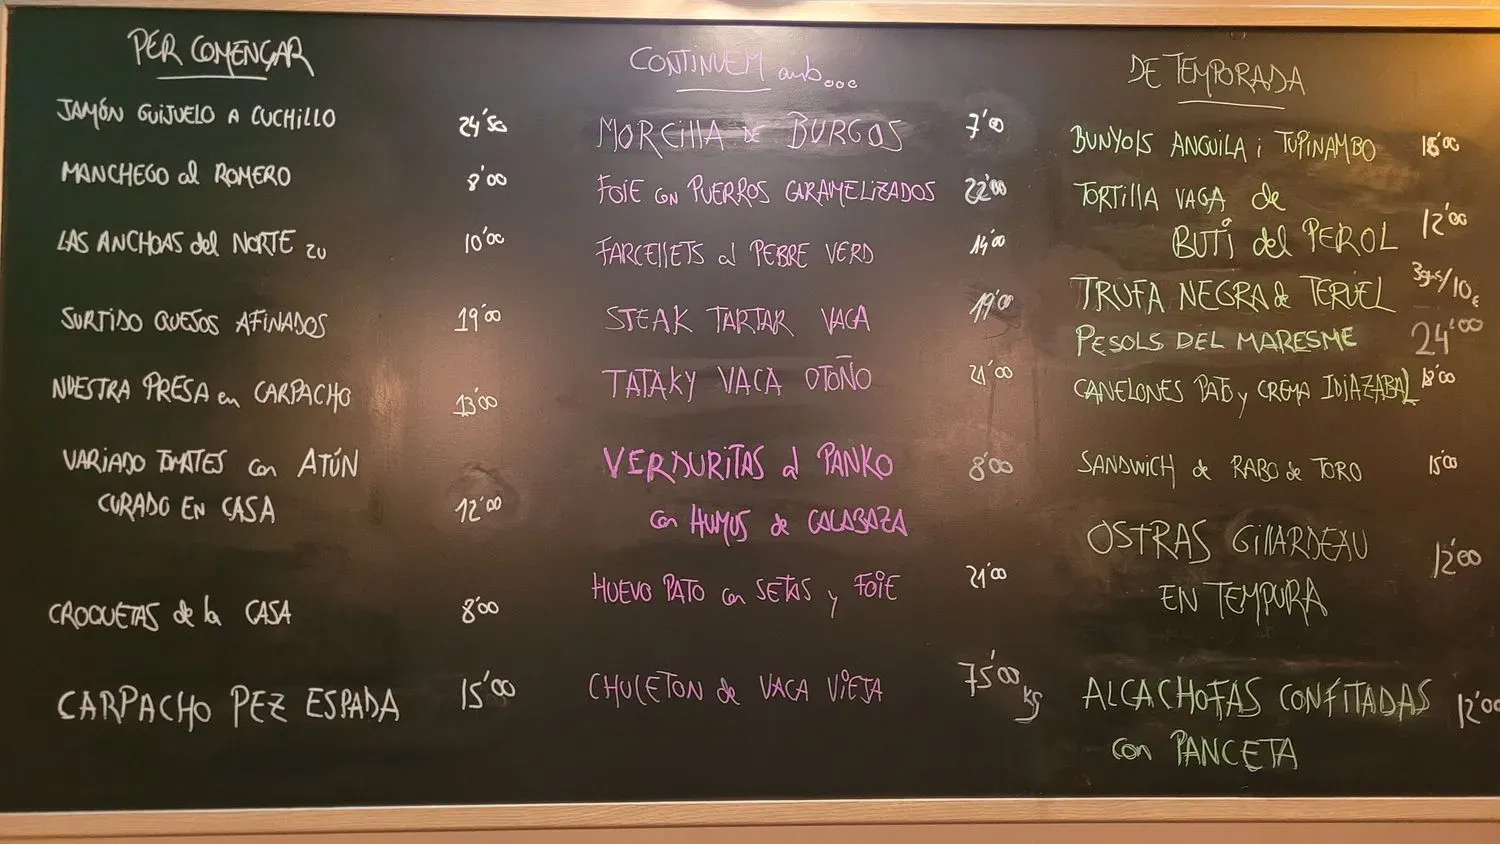 PER COMENÇAR
JAMÓN GUIJUELO A CUCHILLO 24'50
MANCHEGO al ROMERO 8'00
LAS ANCHOAS del NORTE 2U 10'00
SURTIDO QUESOS AFINADOS 19'00
NUESTRA PRESA en CARPACHO 13'00
VARIADO TOMATES con ATÚN
CURADO EN CASA 12'00
CROQUETAS de la CASA 8'00
CARPACHO PEZ ESPADA 15'00
CONTINUEM amb...
MORCILLA DE BURGOS 7'00
FOIE CON PUERROS CARAMELIZADOS 22'00
FARCELLETS al PEBRE VERD 14'00
STEAK TARTAR VACA 19'00
TATAKY VACA OTOÑO 21'00
VERDURITAS al PANKO 8'00
con HUMUS de CALABAZA
HUEVO PATO con SETAS y FOIE 21'00
CHULETON de VACA VIEJA 75'00 KG
DE TEMPORADA
BUNYOLS ANGUILA i TUPINAMBO 18'00
TORTILLA VAGA de
BUTI del PEROL 12'00
TRUFA NEGRA de TERUEL 3grs/10€
PESOLS DEL MARESME 24'00
CANELONES PATO y CREMA IDIAZABAL 18'00
SANDWICH de RABO de TORO 15'00
OSTRAS GILLARDEAU 12'00
EN TEMPURA
ALCACHOFAS CONFITADAS 12'00
con PANCETA